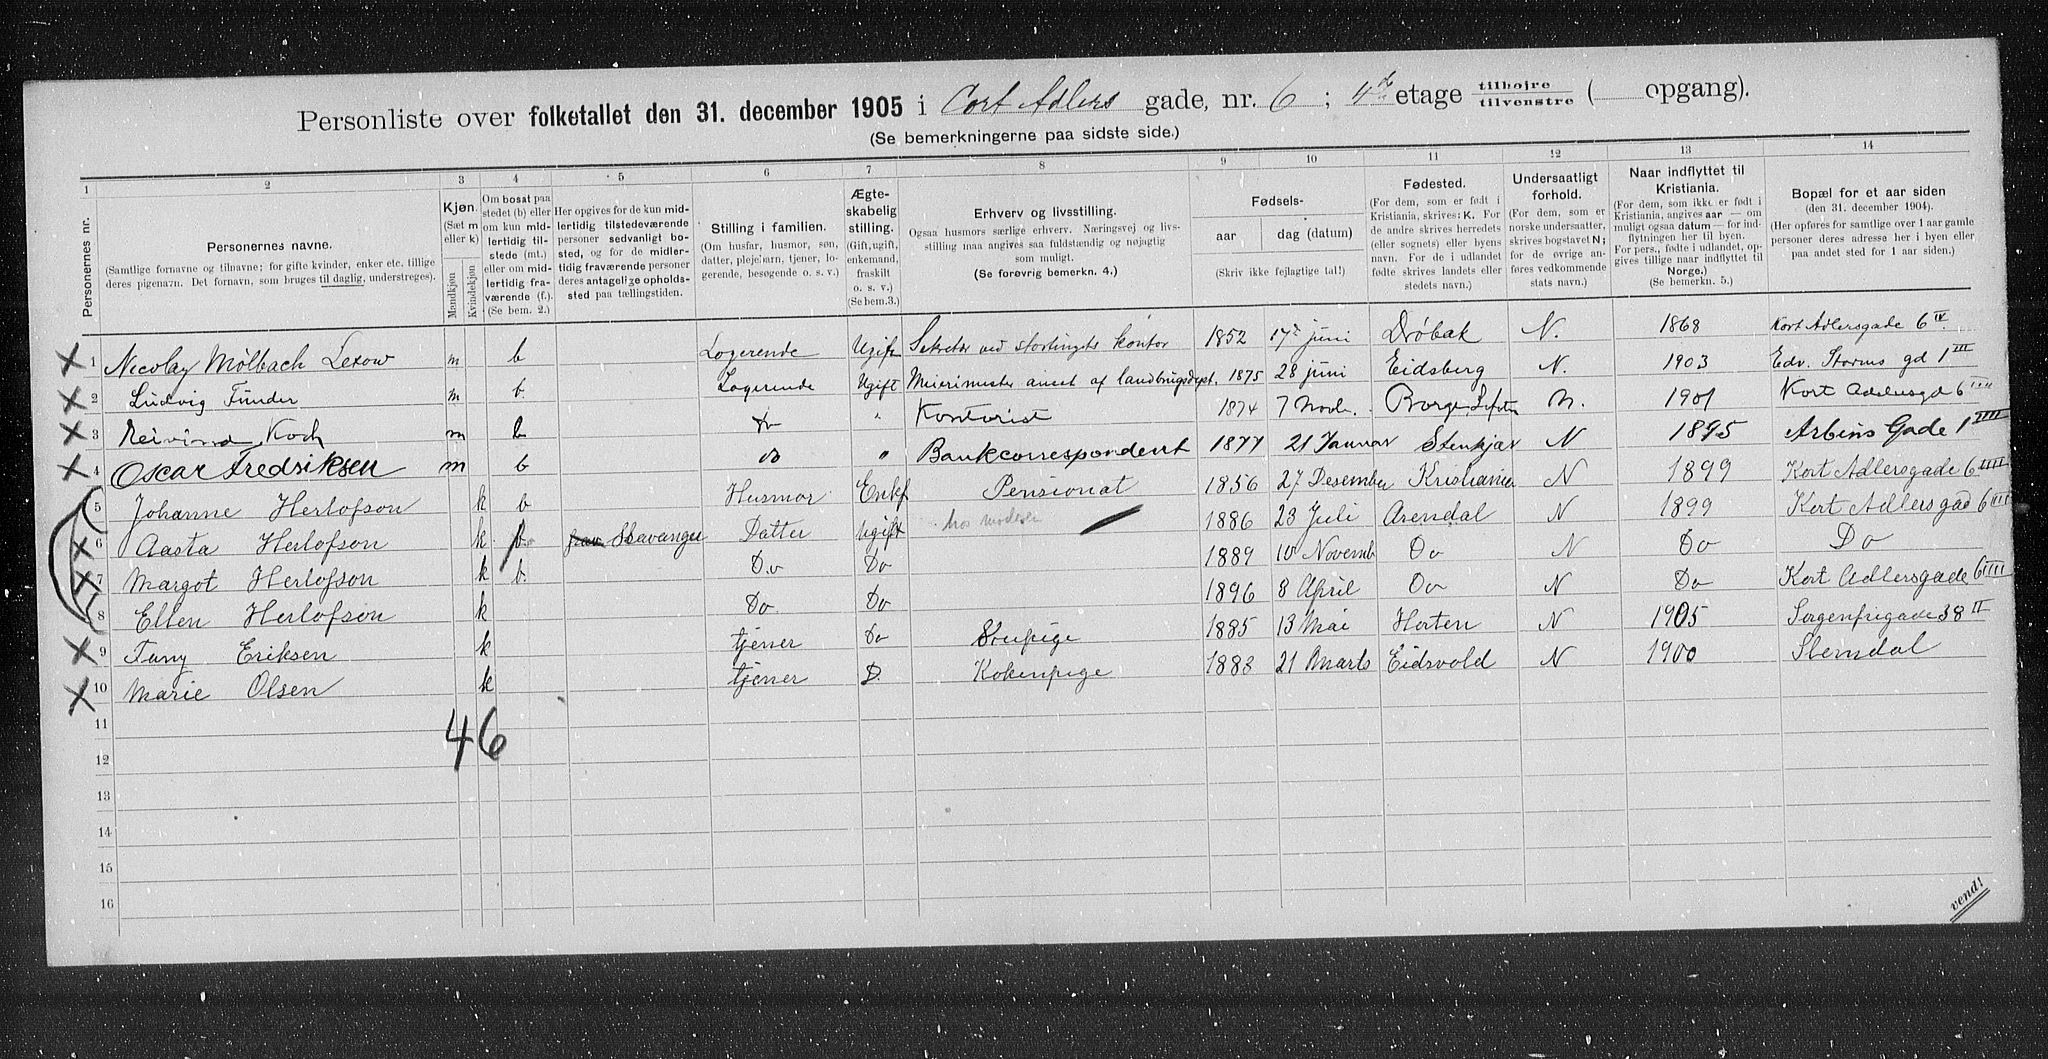 Personliste over folketallet den 31. december 1905 i Cort Adlers gade, nr. 6 ; 4de etage tilhøjre / tilvenstre ( opgang).
(Se bemerkningerne paa sidste side.)
1 2 3 4 5 6 7 8 9 10 11 12 13 14
Personernes nr.
Personernes navne.
(Samtlige fornavne og tilnavne; for gifte kvinder, enker etc. tillige
deres pigenavn. Det fornavn, som bruges til daglig, understreges).
Kjøn.
(Sæt m
eller k)
Mandkjøn
Kvindekjøn
Om bosat paa
stedet (b) eller
om kun mid-
lertidig til-
stede (mt.)
eller om mid-
lertidig fra-
værende (f.).
(Se bem. 2.)
Her opgives for de kun mid-
lertidig tilstedeværende
personer sedvanligt bo-
sted, og for de midler-
tidig fraværende personer
deres antagelige opholds-
sted paa tællingstiden.
Stilling i familien.
(Om husfar, husmor, søn,
datter, plejebarn, tjener, lo-
gerende, besøgende o. s. v.)
Ægte-
skabelig
stilling.
(Gift, ugift,
enkemand,
fraskilt
o. s. v.)
(Se bem.3.)
Erhverv og livsstilling.
Ogsaa husmors særlige erhverv. Næringsvej og livs-
stilling maa angives saa fuldstændig og nøjagtig
som muligt.
(Se forøvrig bemerkn. 4.)
Fødsels-
aar
dag (datum)
(Skriv ikke fejlagtige tal!)
Fødested.
(For dem, som er født i
Kristiania, skrives: K. For
de andre skrives herredets
(eller sognets) eller byens
navn. For de i udlandet
fødte skrives landets eller
stedets navn.)
Undersaatligt
forhold.
(For dem, som er
norske undersaatter,
skrives bogstavet N;
for de øvrige an-
føres vedkommende
stats navn.)
Naar indflyttet til
Kristiania.
(For dem, som ikke er født i
Kristiania, angives aar — om
muligt ogsaa datum — for ind-
flytningen her til byen.
For pers., født i udlandet, op-
gives tillige naar indflyttet til
Norge.)
(Se bemerkn. 5.)
Bopæl for et aar siden
(den 31. december 1904).
(Her opføres for samtlige over 1 aar gamle
personer deres adresse her i byen eller
paa andet sted for 1 aar siden.)
1 Nicolay Mølbach Lexow m b Logerende Ugift Sekretær ved stortingets kontor 1852 17de juni Drøbak N. 1868 Kort Adlersgade 6 IV.
2 Ludvig Funder m b. Logerende Ugift Meierimester ansat af landbrugsdept. 1875 28 juni Eidsberg N. 1903 Edv. Storms gd 1 III
3 Koch m b Do " Kontorist 1874 7 Novbr. Borge N. 1901 Kort Adelersgd 6 IIII
4 Oscar Fredriksen m b Do " Bankcorrespondent 1877 21 Januar Stenkjær N 1895 Arbins Gade 1 IIII
5 Johanne Herlofson k b Husmor Enke Pensionat 1856 27 Desember Kristiania N 1899 Kort Adlersgade 6 IIII
6 Aasta Herlofson k b Stavanger Datter Ugift hos moderen 1886 23 Juli Arendal N 1899 Kort Adlersgad 6 IIII
7 Margot Herlofson k b. Do Do 1889 10 Novemb Do N Do Do
8 Ellen Herlofson k Do Do 1896 8 April Do N Do Kort Adlersgade 6 IIII
9 Fany Eriksen k tjener Do Stuepige 1885 13 Mai Horten N 1905 Sorgenfrigade 38 II
10 Marie Olsen k tjener D. Kokenpige 1883 21 Marts Eidsvold N 1900 Slemdal
11
46
12
13
14
15
16
vend!